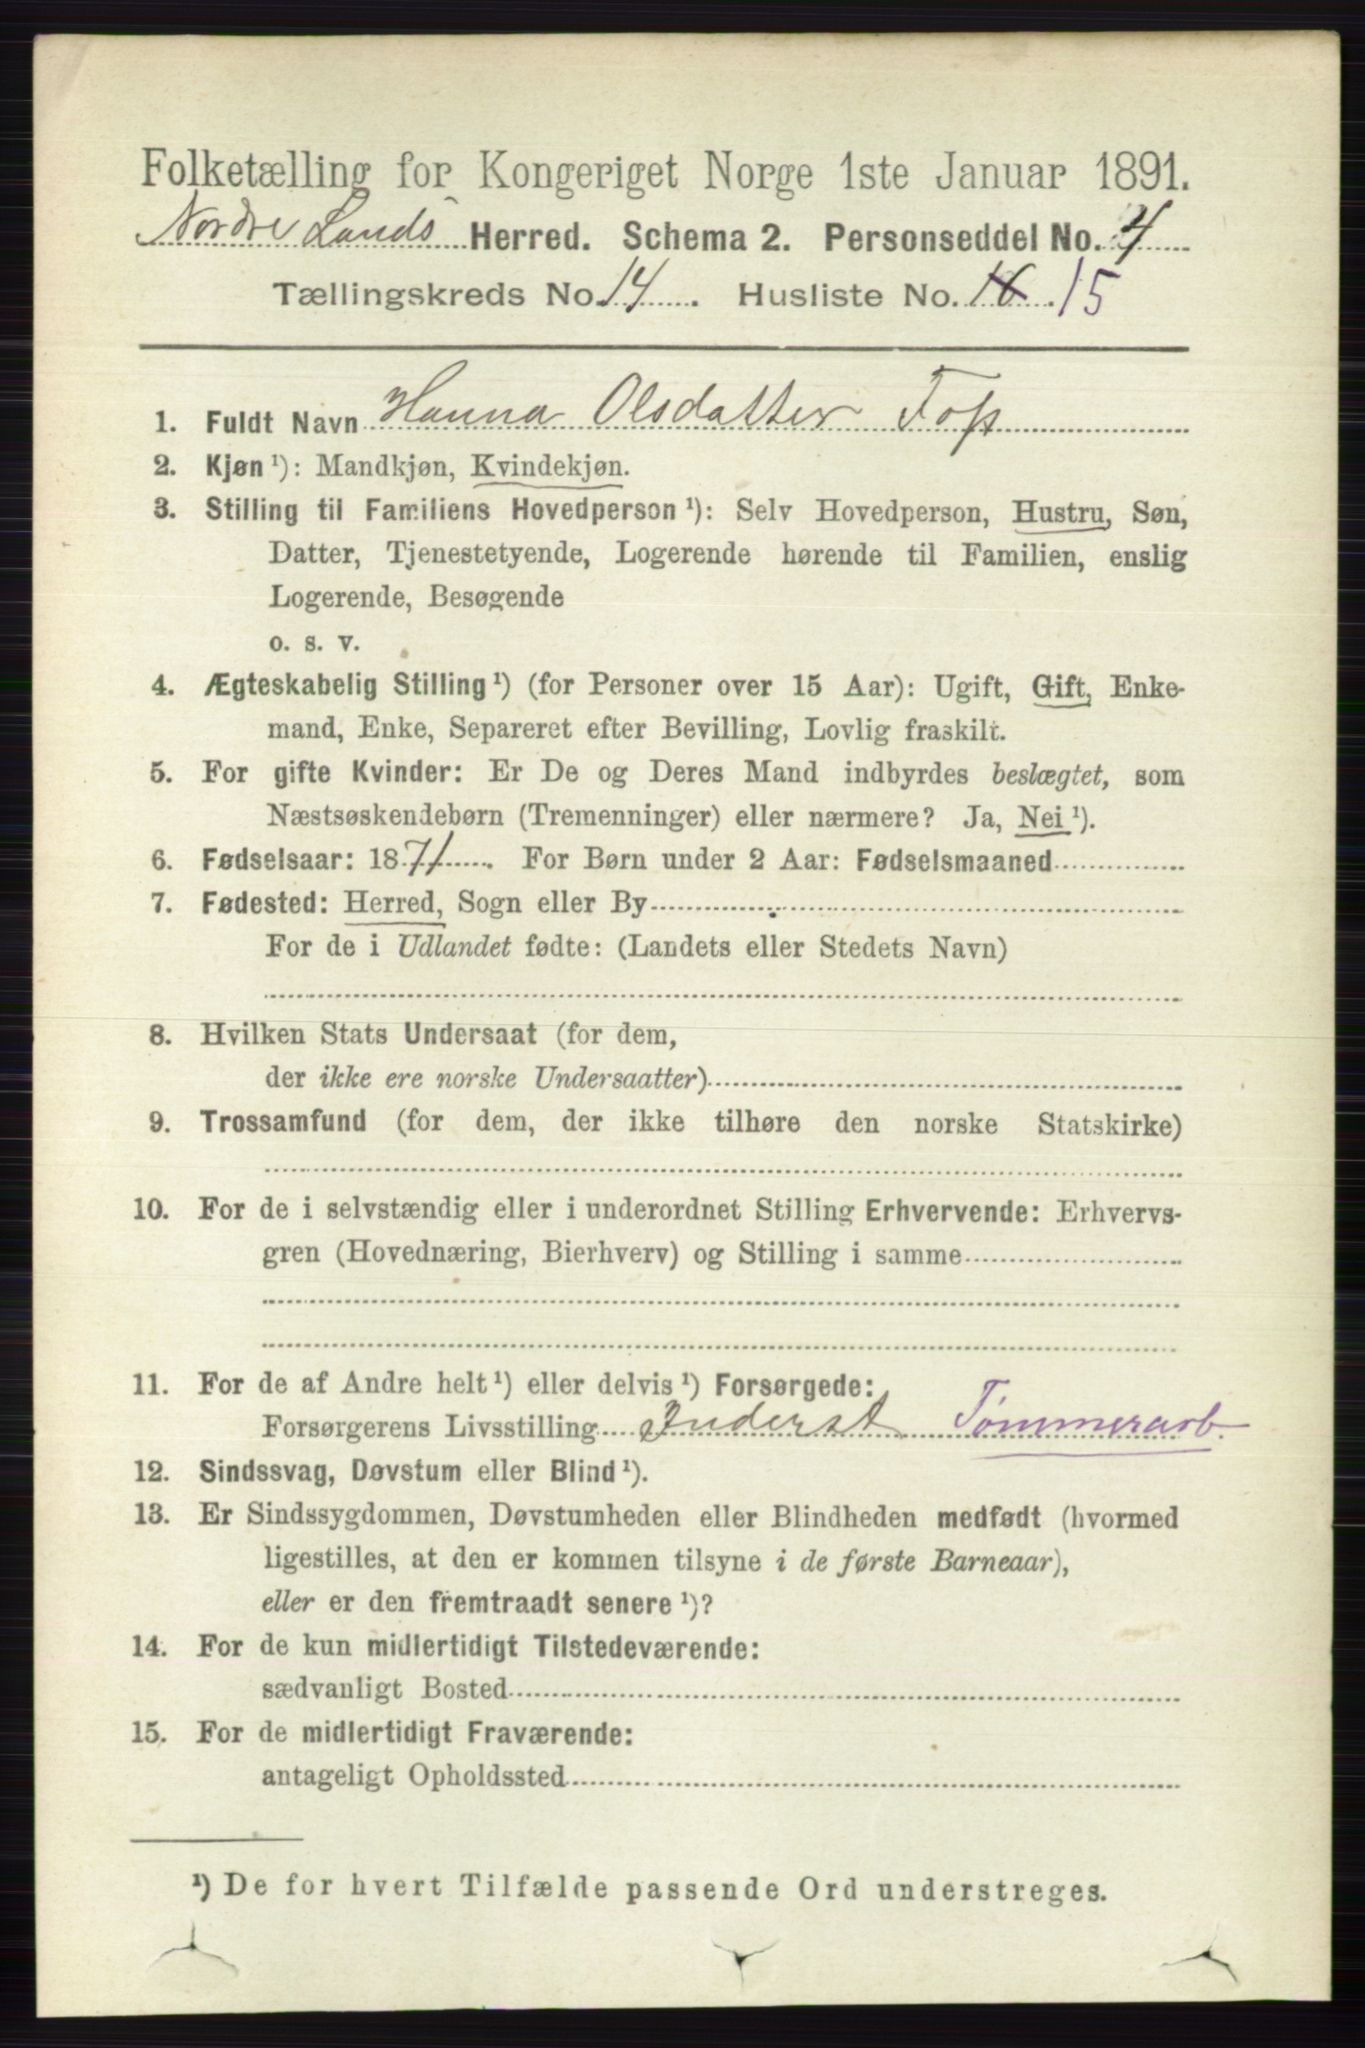 Folketælling for Kongeriget Norge 1ste Januar 1891.
Nordre Lands Herred. Schema 2. Personseddel No. 4
Tællingskreds No. 14. Husliste No. 16. 15
1. Fuldt Navn Hanna Olsdatter Foss
2. Kjøn ¹): Mandkjøn, Kvindekjøn.
3. Stilling til Familiens Hovedperson ¹): Selv Hovedperson, Hustru, Søn,
Datter, Tjenestetyende, Logerende hørende til Familien, enslig
Logerende, Besøgende
o. s. v.
4. Ægteskabelig Stilling ¹) (for Personer over 15 Aar): Ugift, Gift, Enke-
mand, Enke, Separeret efter Bevilling, Lovlig fraskilt.
5. For gifte Kvinder: Er De og Deres Mand indbyrdes beslægtet, som
Næstsøskendebørn (Tremenninger) eller nærmere? Ja, Nei ¹).
6. Fødselsaar: 1871. For Børn under 2 Aar: Fødselsmaaned
7. Fødested: Herred, Sogn eller By
For de i Udlandet fødte: (Landets eller Stedets Navn)
8. Hvilken Stats Undersaat (for dem,
der ikke ere norske Undersaatter)
9. Trossamfund (for dem, der ikke tilhøre den norske Statskirke)
10. For de i selvstændig eller i underordnet Stilling Erhvervende: Erhvervs-
gren (Hovednæring, Bierhverv) og Stilling i samme
11. For de af Andre helt ¹) eller delvis ¹) Forsørgede:
Forsørgerens Livsstilling Inderst Tømmerarb.
12. Sindssvag, Døvstum eller Blind ¹).
13. Er Sindssygdommen, Døvstumheden eller Blindheden medfødt (hvormed
ligestilles, at den er kommen tilsyne i de første Barneaar),
eller er den fremtraadt senere ¹)?
14. For de kun midlertidigt Tilstedeværende:
sædvanligt Bosted
15. For de midlertidigt Fraværende:
antageligt Opholdssted
¹) De for hvert Tilfælde passende Ord understreges.